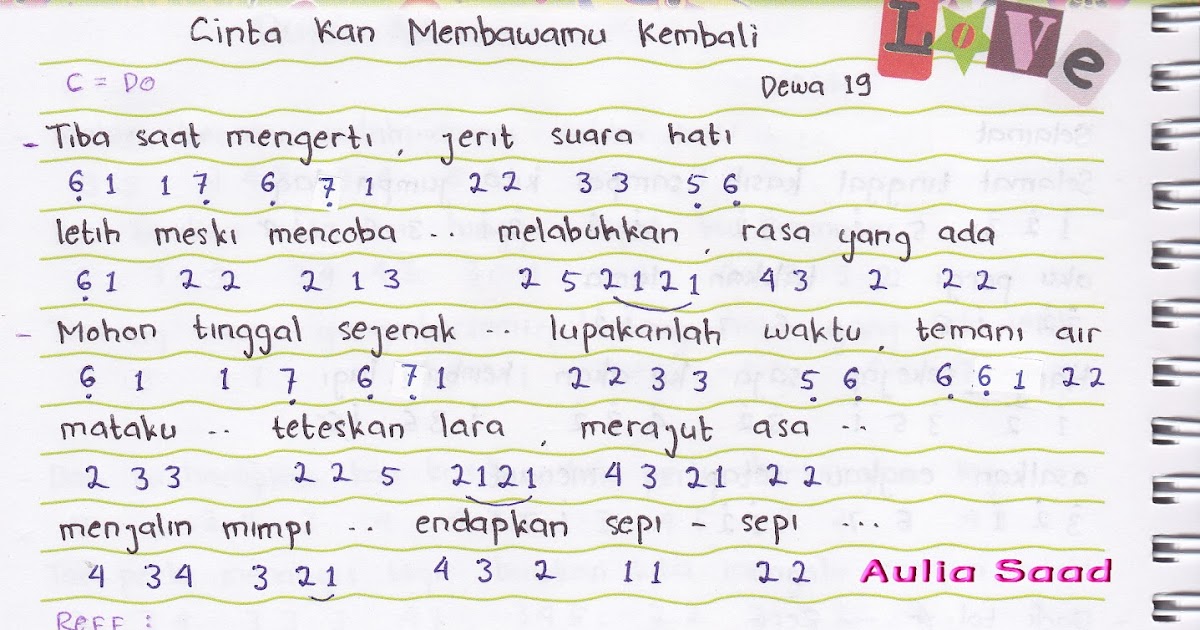 Cinta Kan Membawamu Kembali
LOVe
C = Do
Dewa 19
- Tiba saat mengerti, jerit suara hati
6̣ 1 1 7̣ 6̣ 7̣ 1 2 2 3 3 5̣ 6̣
letih meski mencoba .. melabuhkan, rasa yang ada
6̣ 1 2 2 2 1 3 2 5 2 1 2 1 4 3 2 2 2
- Mohon tinggal sejenak lupakanlah waktu, temani air
6̣ 1 1 7̣ 6̣ 7̣ 1 2 2 3 3 5̣ 6̣ 6̣ 6̣ 1 2 2
mataku .. teteskan lara, merajut asa ..
2 3 3 2 2 5 2 1 2 1 4 3 2 1 2 2
menjalin mimpi .. endapkan sepi - sepi ..
4 3 4 3 2 1 4 3 2 1 1 2 2
Aulia Saad
Reff :